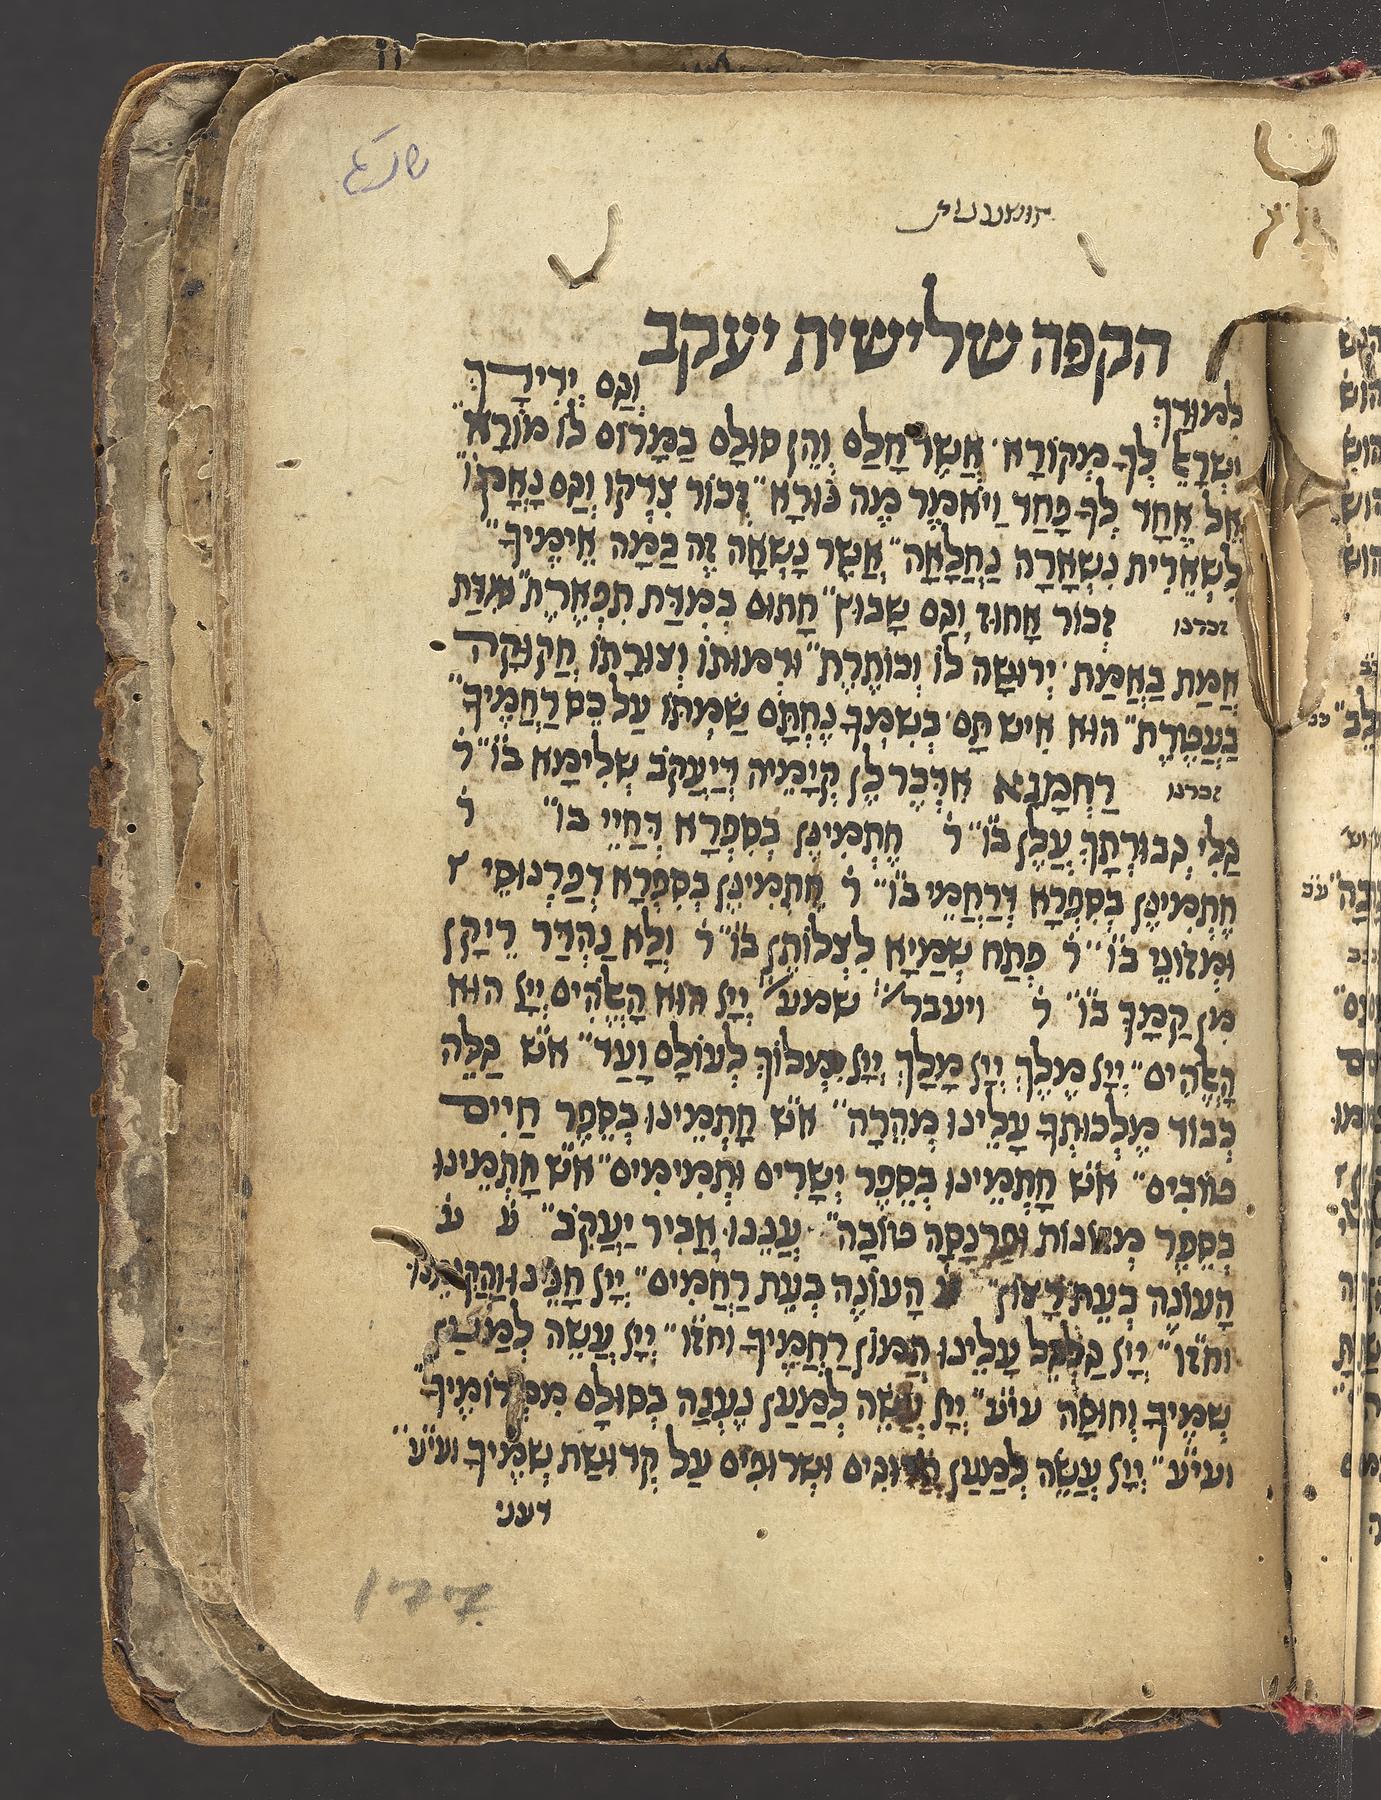 הושענות
הקפה שלישית יעקב
למוּרָךְ וְקַם יְדִידָךְ
יִשְׂרָאֵל לְךָ מִקּוֹרָא׳ אֲשֶׁר חָלַם וְהֵן סוּלָם בַּמָּרוֹם לוֹ מוֹרָא״
אֵל אֶחָד לְךָ פָּחַד וַיֹּאמֶר מַה נּוֹרָא״ זְכוֹר צִדְקוֹ וְקַם נָאֳמָךְ
לִשְׁאֵרִית נִשְׁאָרָה נַחֲלָאָה״ אֲשֶׁר נָשְׂאָה זֶה כַּמָּה אֵימֶיךָ״
זכרנו זְכוֹר אָחוּז וְקַם שָׁבוּץ״ חָתוּם בְּמִדַּת תִּפְאֶרֶת״ מִדַּת
אֱמַת בֶּאֱמַת׳ יְרוּשָׁה לוֹ וְכוֹתֶרֶת״ וּדְמוּתוֹ וְצוּרָתוֹ חֲקוּקָה
בַּעֲטֶרֶת״ הוּא אִישׁ תָּם׳ בְּשִׁמְךָ נֶחְתָּם שַׂמְתּוֹ עַל כֵּס רַחֲמֶיךָ״
זכרנו רַחְמָנָא אִדְכַּר לָן קְיָמֵיהּ דְּיַעֲקֹב שְׁלֵימָא בּוֹ״ ר׳
גַּלֵּי גְבוּרְתָךְ עֲלָן בּוֹ״ ר׳ חָתְמִינָן בְּסִפְרָא דְּחַיֵּי בּוֹ״ ר׳
חָתְמִינָן בְּסִפְרָא דְּרַחֲמֵי בּוֹ״ ר׳ חָתְמִינָן בְּסִפְרָא דְּפַרְנוּסֵי
וּמְזוֹנֵי בּוֹ״ ר׳ פְּתַח שְׁמַיָּא לִצְלוֹתָן בּוֹ״ ר׳ וְלָא נַהְדַּר רֵיקָן
מִן קַמָּךְ בּוֹ״ ר׳ ויעבר״ שמע״ יְיָ הוּא הָאֱלֹהִים יְיָ הוּא
הָאֱלֹהִים״ יְיָ מֶלֶךְ יְיָ מָלַךְ יְיָ יִמְלוֹךְ לְעוֹלָם וָעֶד״ אש״ גַּלֵּה
כְּבוֹד מַלְכוּתְךָ עָלֵינוּ מְהֵרָה״ אש״ חָתְמֵינוּ בְּסֵפֶר חַיִּים
טוֹבִים״ אש״ חָתְמֵינוּ בְּסֵפֶר יְשָׁרִים וּתְמִימִים״ אש״ חָתְמֵינוּ
בְּסֵפֶר מְזוֹנוֹת וּפַרְנָסָה טוֹבָה״ עֲנֵנוּ אֲבִיר יַעֲקֹב״ ע׳ ע׳
הָעוֹנֶה בְּעֵת רָצוֹן״ ע׳ הָעוֹנֶה בְּעֵת רַחֲמִים״ יְיָ חָנֵּינוּ וַהֲקִימֵנוּ
וחזו״ יְיָ גַּלְגֵּל עָלֵינוּ הֲמוֹן רַחֲמֶיךָ וחזו״ יְיָ עֲשֵׂה לְמַעַן
שְׁמֶיךָ וְחוּסָה עי״ע״ יְיָ עֲשֵׂה לְמַעַן נַעֲנָה בְּסוּלָם מִמְּרוֹמֶיךָ
ועי״ע״ יְיָ עֲשֵׂה לְמַעַן הֲרוּגִים וּשְׂרוּפִים עַל קְדוּשַּׁת שְׁמֶיךָ ועי״ע״
דעני
177